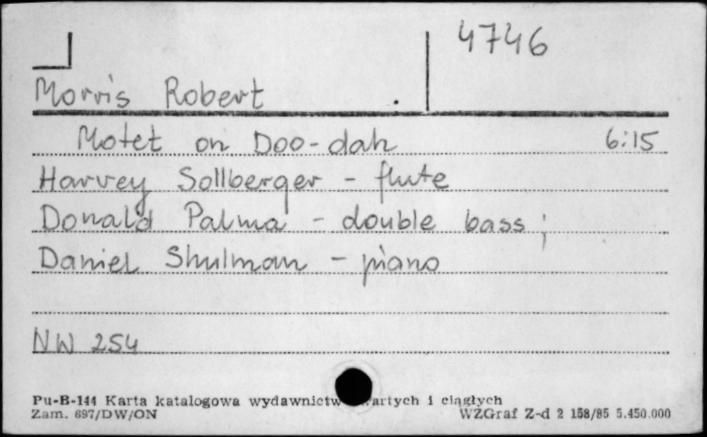 4746
Morris Robert .
Motet on Doo-dah 6:15
Harvey Sollberger - flute
Donald Palma - double bass ;
Daniel Shulman - piano
NW 254
Pu-B-144 Karta katalogowa wydawnictw artych i ciągłych
Zam. 697/DW/ON WZGraf Z-d 2 158/85 5.450.000